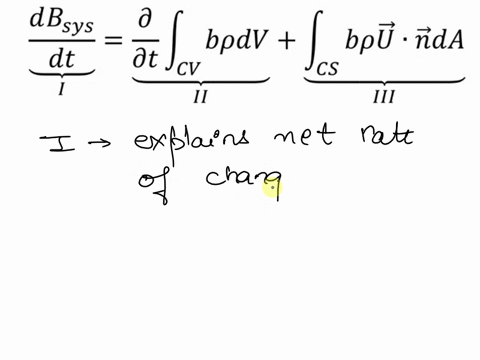 dB_sys/dt = ∂/∂t ∫_CV bρdV + ∫_CS bρU⃗ · n⃗dA
I II III
I → explains net rate
of chang